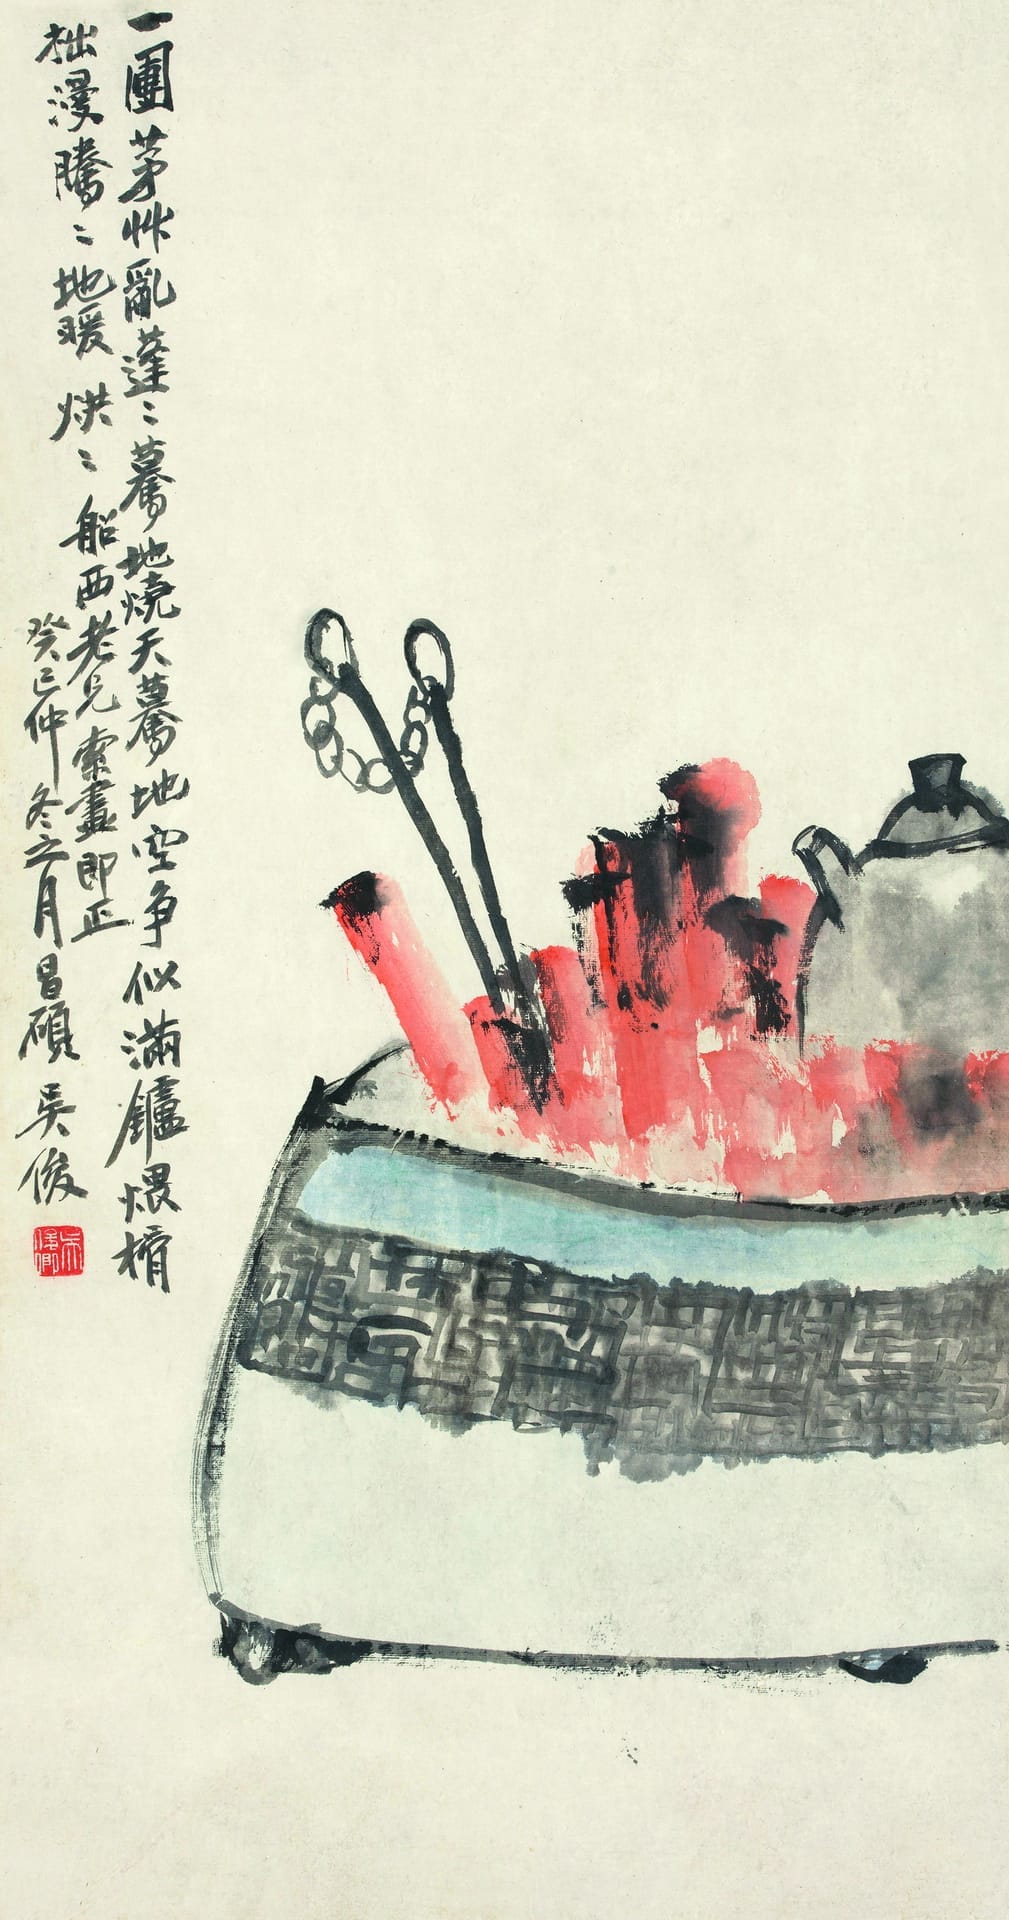 一團茅艸亂蓬〻驀地燒天驀地空争似滿鑪煨榾
柮漫騰〻地暖烘〻船西老兄索畫即正
癸巳仲冬之月昌碩吳俊
吳俊卿